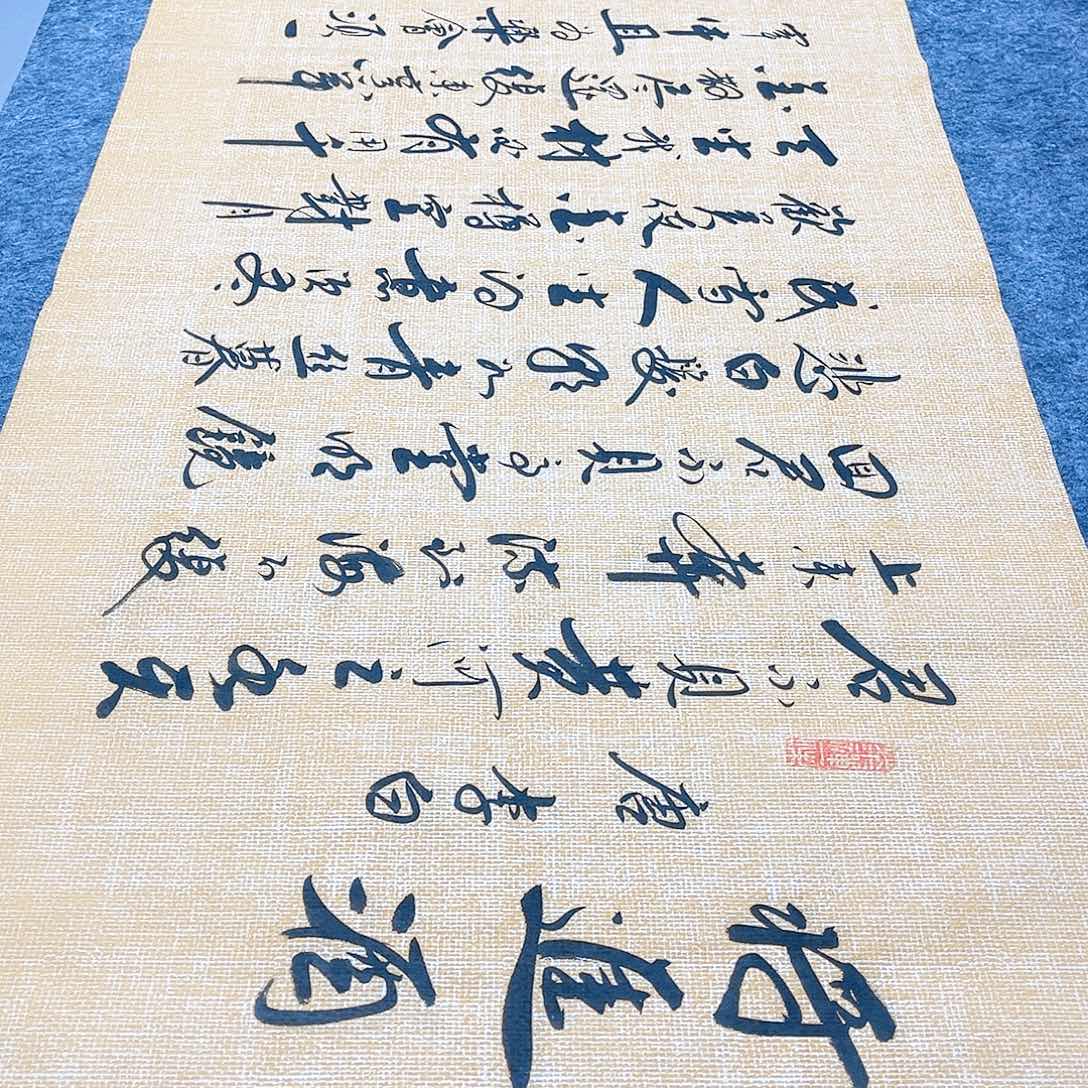 将進酒
唐李白
君不見黄河之水天
上来奔流到海不復
回君不見高堂明鏡
悲白髮朝如青絲暮
成雪人生得意須盡
歡莫使金樽空對月
天生我材必有用千
金散盡還復来烹羊
宰牛且為樂會須一